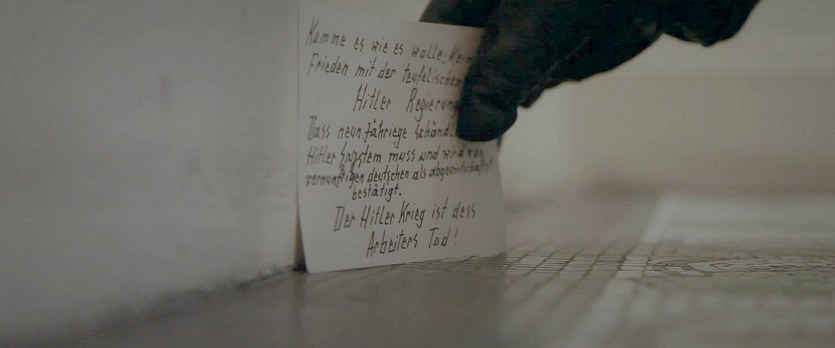 Komme es wie es wolle; Kein
Frieden mit der teufelischen
Hitler Regierung
Dass neun Jähriege Schändl
Hitler System muss und wird von
vernunftigen deutschen als
bestätigt.
Der Hitler Krieg ist dess
Arbeiters Tod!